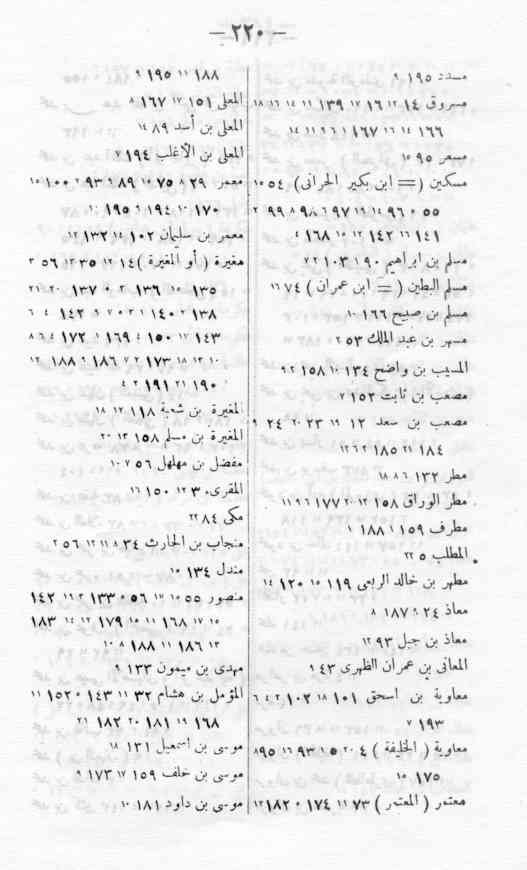 — ٢٢٠ —
مسدد ١٩٥ ٩
مسروق ١٤ ١٢ ١٦ ١٧ ١٣٩ ١١ ١٤ ١٦ ١٨
١٦٦ ١٤ ١٦ ١٦٧ ١ ٦ ٩ ١١ ١٤
مسعر ٩٥ ١٥
مسكين (= ابن بكير الحرانى) ٥٤ ١٥
٥٥ ٥ ٩٦ ١٤ ١٩ ٩٧ ١٦ ٩٨ ٦ ٨ ٩٩ ٢
١٤١ ١٦ ١٤٢ ١٢ ١٥ ١٦٨ ٤
مسلم بن ابراهيم ٩٠ ١ ١٠٣ ٢ ٧
مسلم البطين (= ابن عمران) ٧٤ ١٦
مسلم بن صبيح ١٦٦ ١٠
مسهر بن عبد الملك ٥٣ ٢
المسيب بن واضح ١٣٤ ١٠ ١٥٨ ٢ ٩
مصعب بن ثابت ١٥٣ ٢
مصعب بن سعد ١٢ ١٩ ٢٣ ٢٠ ٢٤ ٩
١٨٤ ٢١ ١٨٥ ٢ ٦ ١٢
مطر ١٣٢ ٦ ٨ ١٨
مطر الوراق ١٥٨ ١٢ ٢٠ ١٧٧ ٦ ٩ ١١
مطرف ١٥٩ ٤ ١٨٨ ١
المطلب ٢٥ ٢٢
مطهر بن خالد الربعى ١١٩ ١٥ ١٢٠ ١٤
معاذ ٢٤ ٩ ١٨٧ ٨
معاذ بن جبل ٩٣ ١٢
المعانى بن عمران الظهرى ٤٣ ٩
معاوية بن اسحق ١٠١ ١٨ ١٠٢ ٢ ٤ ٦
١٩٣ ٧
معاوية (الخليفة) ٤ ٢٠ ٥ ١ ٩٣ ١٦ ٩٥ ٨
١٧٥ ١٥
معتمر (المعتمر) ٧٣ ١١ ١٧٤ ٥ ١٨٢ ١٢
١٨٨ ١١ ١٩٥ ٩
المعلى ١٥١ ١٧ ١٦٧ ٩
المعلى بن أسد ٨٩ ١٤
المعلى بن الأغلب ١٩٤ ٧
معمر ٢٩ ٤ ٧٥ ١٥ ٨٩ ٤ ٩٣ ٢ ١٠٠ ١٥
١٧٠ ١٠ ١٩٤ ٤ ١٩٥ ١٠
معمر بن سليمان ١٠٢ ١٤ ١٣٢ ١٢
مغيرة (أو المغيرة) ١٤ ١٢ ٣٥ ١٢ ٥٦ ٣
١٣٥ ١٥ ١٣٦ ٢ ٥ ١٣٧ ٢٠ ٢١
١٣٨ ٢ ١٤٠ ١ ٣ ٥ ٧ ٩ ١٤٢ ٤ ٦
١٤٣ ١٧ ١٥٠ ٤ ١٦٩ ٤ ١٧٢ ٤ ٦ ٨
١٠ ١٢ ١٨ ١٧٣ ٢ ٧ ١٨٦ ٩ ١٨٨ ١٢
١٩٠ ٢١ ١٩١ ٢ ٤
المغيرة بن شعبة ١١٨ ١٢ ١٨
المغيرة بن مسلم ١٥٨ ١٣ ٢٠
مفضل بن مهلهل ٥٦ ٧ ١٠
المقرىء ٣٠ ١٢ ١٥٠ ١٦
مكى ٨٤ ٢٢
منجاب بن الحارث ٣٤ ٨ ١١ ١٢ ٥٦ ٢
مندل ١٣٤ ١٥
منصور ٥٥ ١٥ ١٧ ٥٦ ٥ ١٣٣ ٢ ١٩ ١٤٢
١٥ ١٧ ١٦٨ ١١ ١٥ ١٧٩ ١٢ ١٤ ١٨٣
١٣ ١٨٦ ١١ ١٨٨ ٨ ١٠
مهدى بن ميمون ١٣٣ ٩
المؤمل بن هشام ٣٢ ١١ ١٤٣ ٥ ١٥٢ ١١
١٦٨ ١٩ ١٨١ ٢٠ ١٨٢ ٢١
موسى بن اسمعيل ١٣١ ١٨
موسى بن خلف ١٥٩ ١٧ ١٧٣ ٩
موسى بن داود ١٨١ ١٠